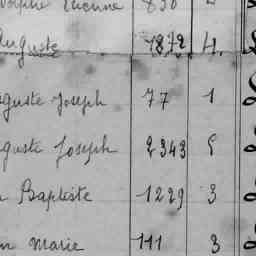 Adolphe Etienne 830 2
Auguste 1872 4
Auguste Joseph 77 1
Auguste Joseph 2343 5
n Baptiste 1229 3
n Marie 111 3